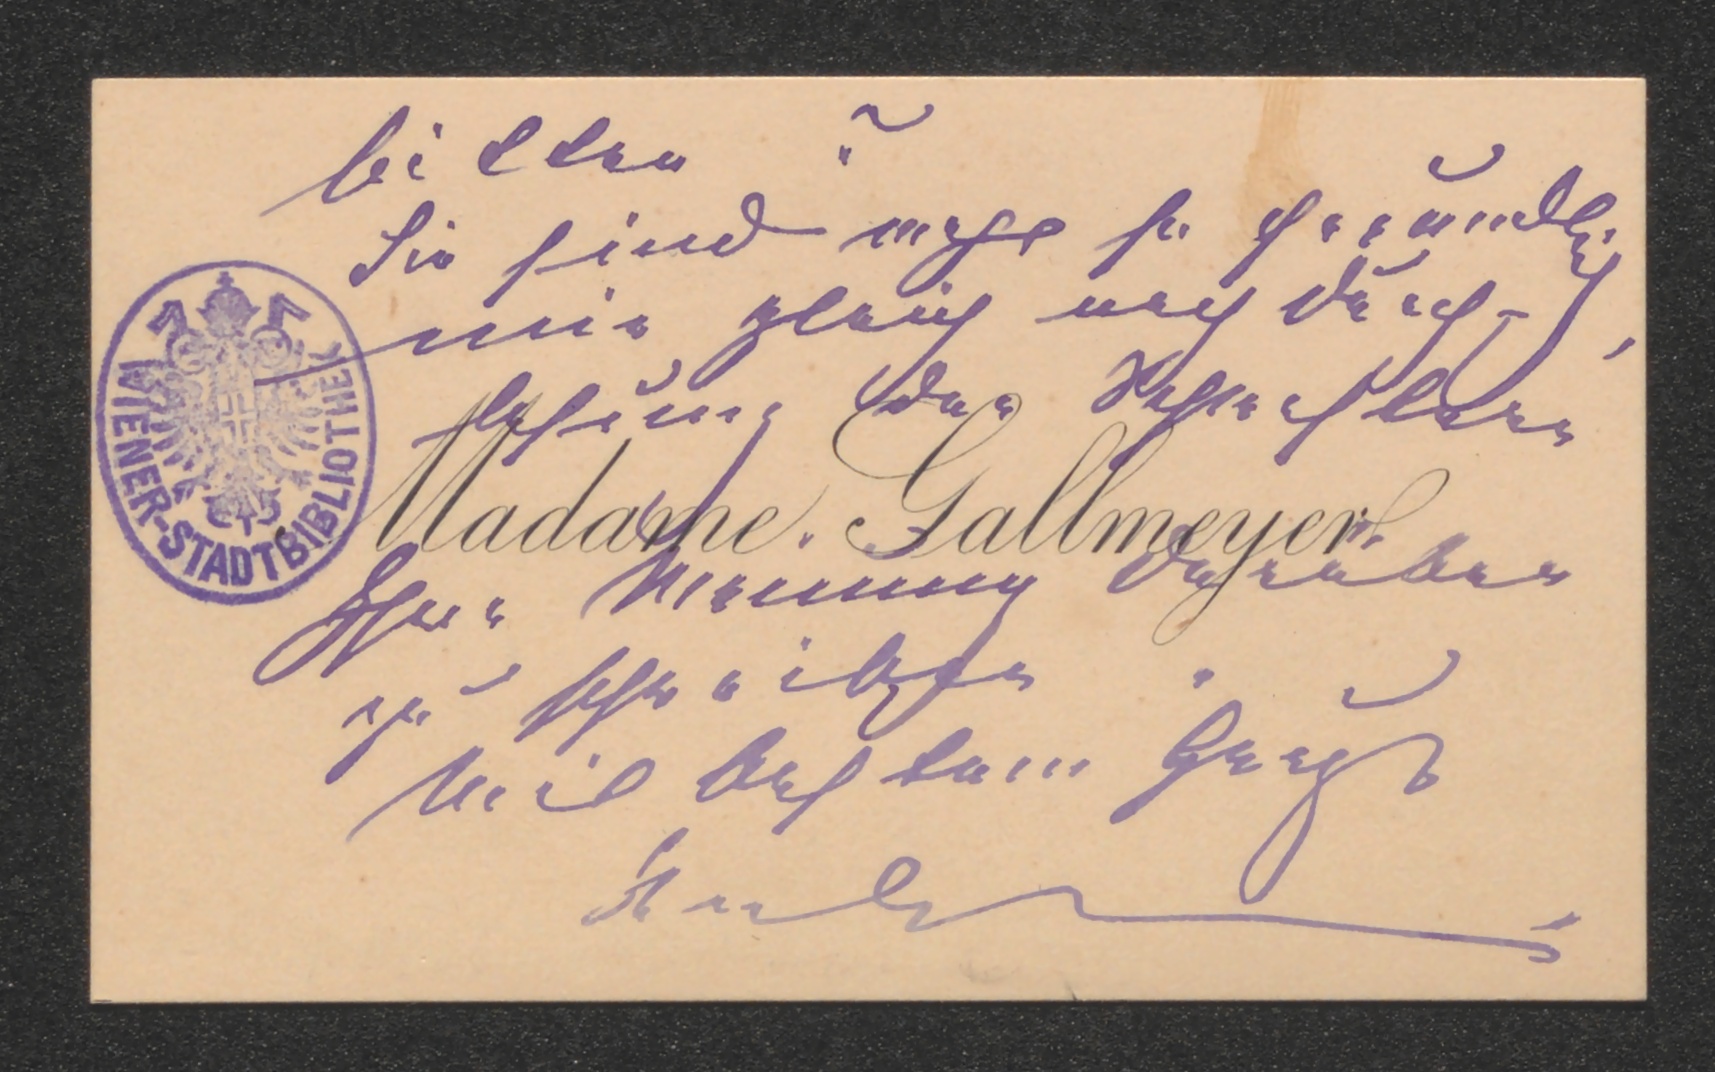 bitten
Sie sind wohl so freundlich,
mir gleich nach Durch-
lesung der
Madame. Gallmeyer.
Ihre Meinung darüber
zu schreiben.
Mit bestem Gruß
WIENER-STADTBIBLIOTHEK